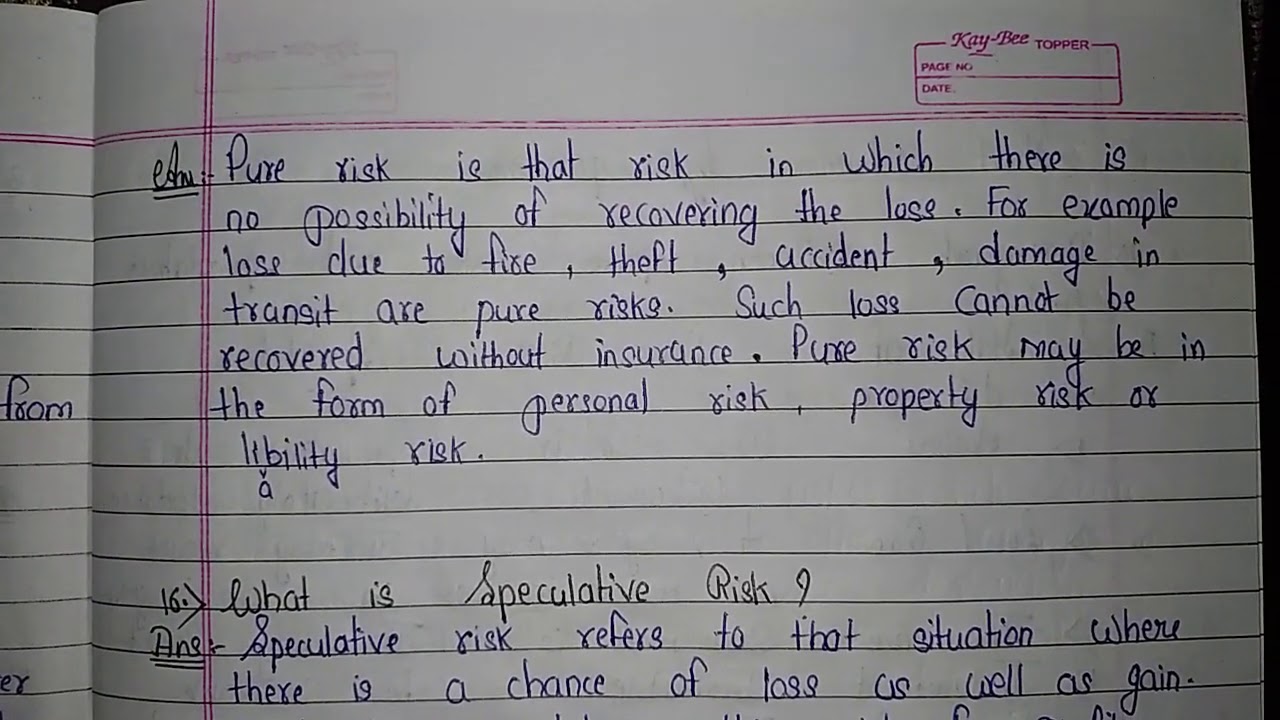 Kay-Bee TOPPER
PAGE NO
DATE.
Ans:- Pure risk is that risk in which there is
no possibility of recovering the loss. For example
loss due to fire, theft, accident, damage in
transit are pure risks. Such loss Cannot be
recovered without insurance. Pure risk may be in
from
the form of personal risk, property risk or
libility risk.
ǎ
16.) What is Speculative Risk ?
Ans:- Speculative risk refers to that situation where
er
there is a chance of loss as well as gain.